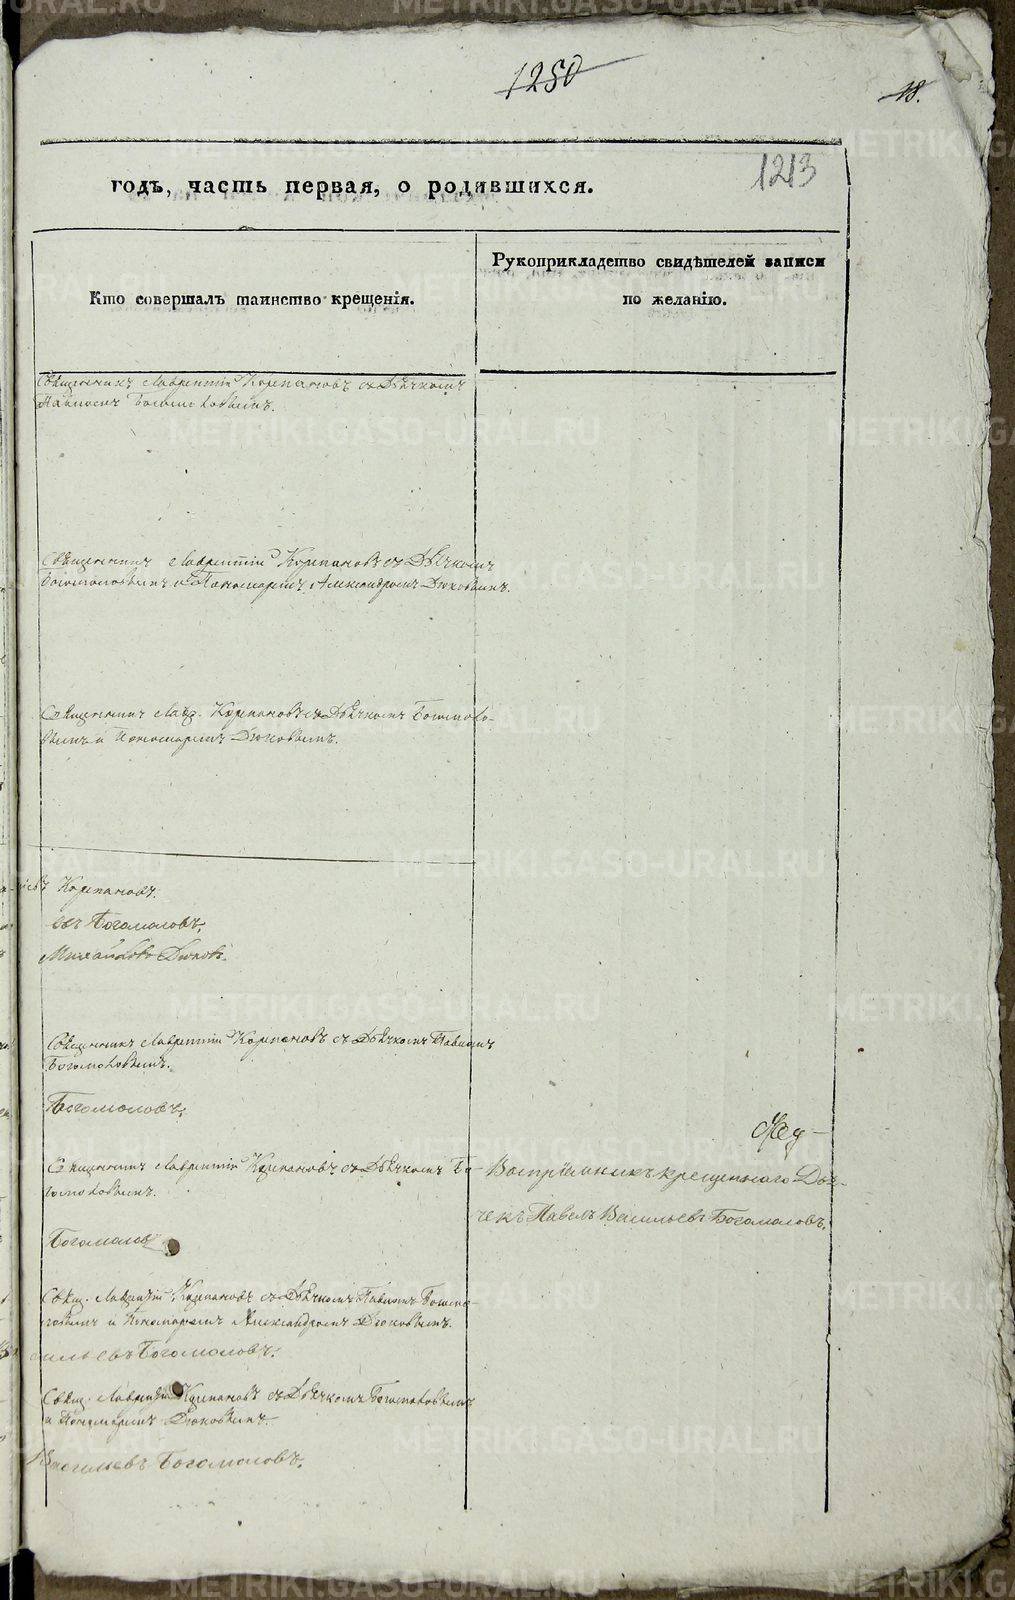 1250
18.
1213
годъ, часть первая, о родившихся.
Кто совершалъ таинство крещенія.
Рукоприкладство свидѣтелей записи
по желанію.
Священникъ Лаврентій Корепановъ съ Дьячкомъ
Павломъ Богомоловымъ.
Священникъ Лаврентій Корепановъ съ Дьячкомъ
Богомоловымъ и Пономаремъ Александромъ Дюковымъ.
Священникъ Лавр. Корепановъ съ Дьячкомъ Богомоло-
вымъ и Пономаремъ Дюковымъ.
Корепановъ.
евъ Богомоловъ,
Михайловъ Дюковъ.
Священникъ Лаврентій Корепановъ съ Дьячкомъ Павломъ
Богомоловымъ.
Богомоловъ,
Священникъ Лаврентій Корепановъ съ Дьячкомъ Бо-
гомоловымъ.
Воспріемникъ крещеннаго Дья-
чекъ Павелъ Васильевъ Богомоловъ,
Богомоловъ
Свящ. Лаврентій Корепановъ съ Дьячкомъ Павломъ Богомо-
ловымъ и Пономаремъ Александромъ Дюковымъ.
сильевъ Богомоловъ.
Свящ. Лаврентій Корепановъ съ Дьячкомъ Богомоловымъ
и Пономаремъ Дюковымъ.
Васильевъ Богомоловъ.
METRIKI.GASO-URAL.RU